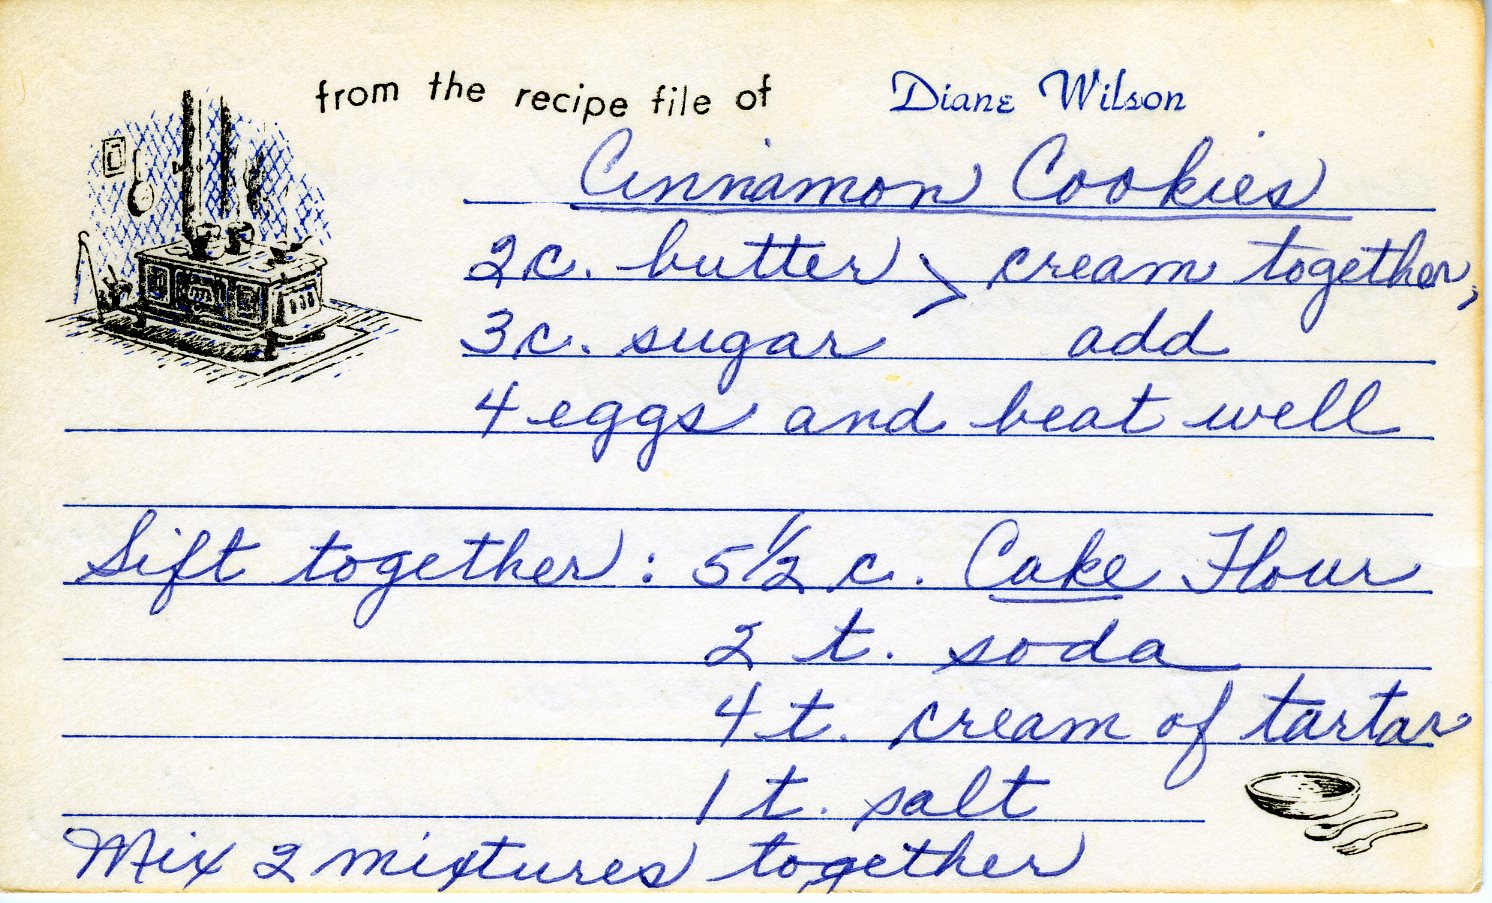 from the recipe file of Diane Wilson
Cinnamon Cookies
2 c. butter > cream together,
3 c. sugar add
4 eggs and beat well
Sift together: 5 1/2 c. Cake Flour
2 t. soda
4 t. cream of tartar
1 t. salt
Mix 2 mixtures together